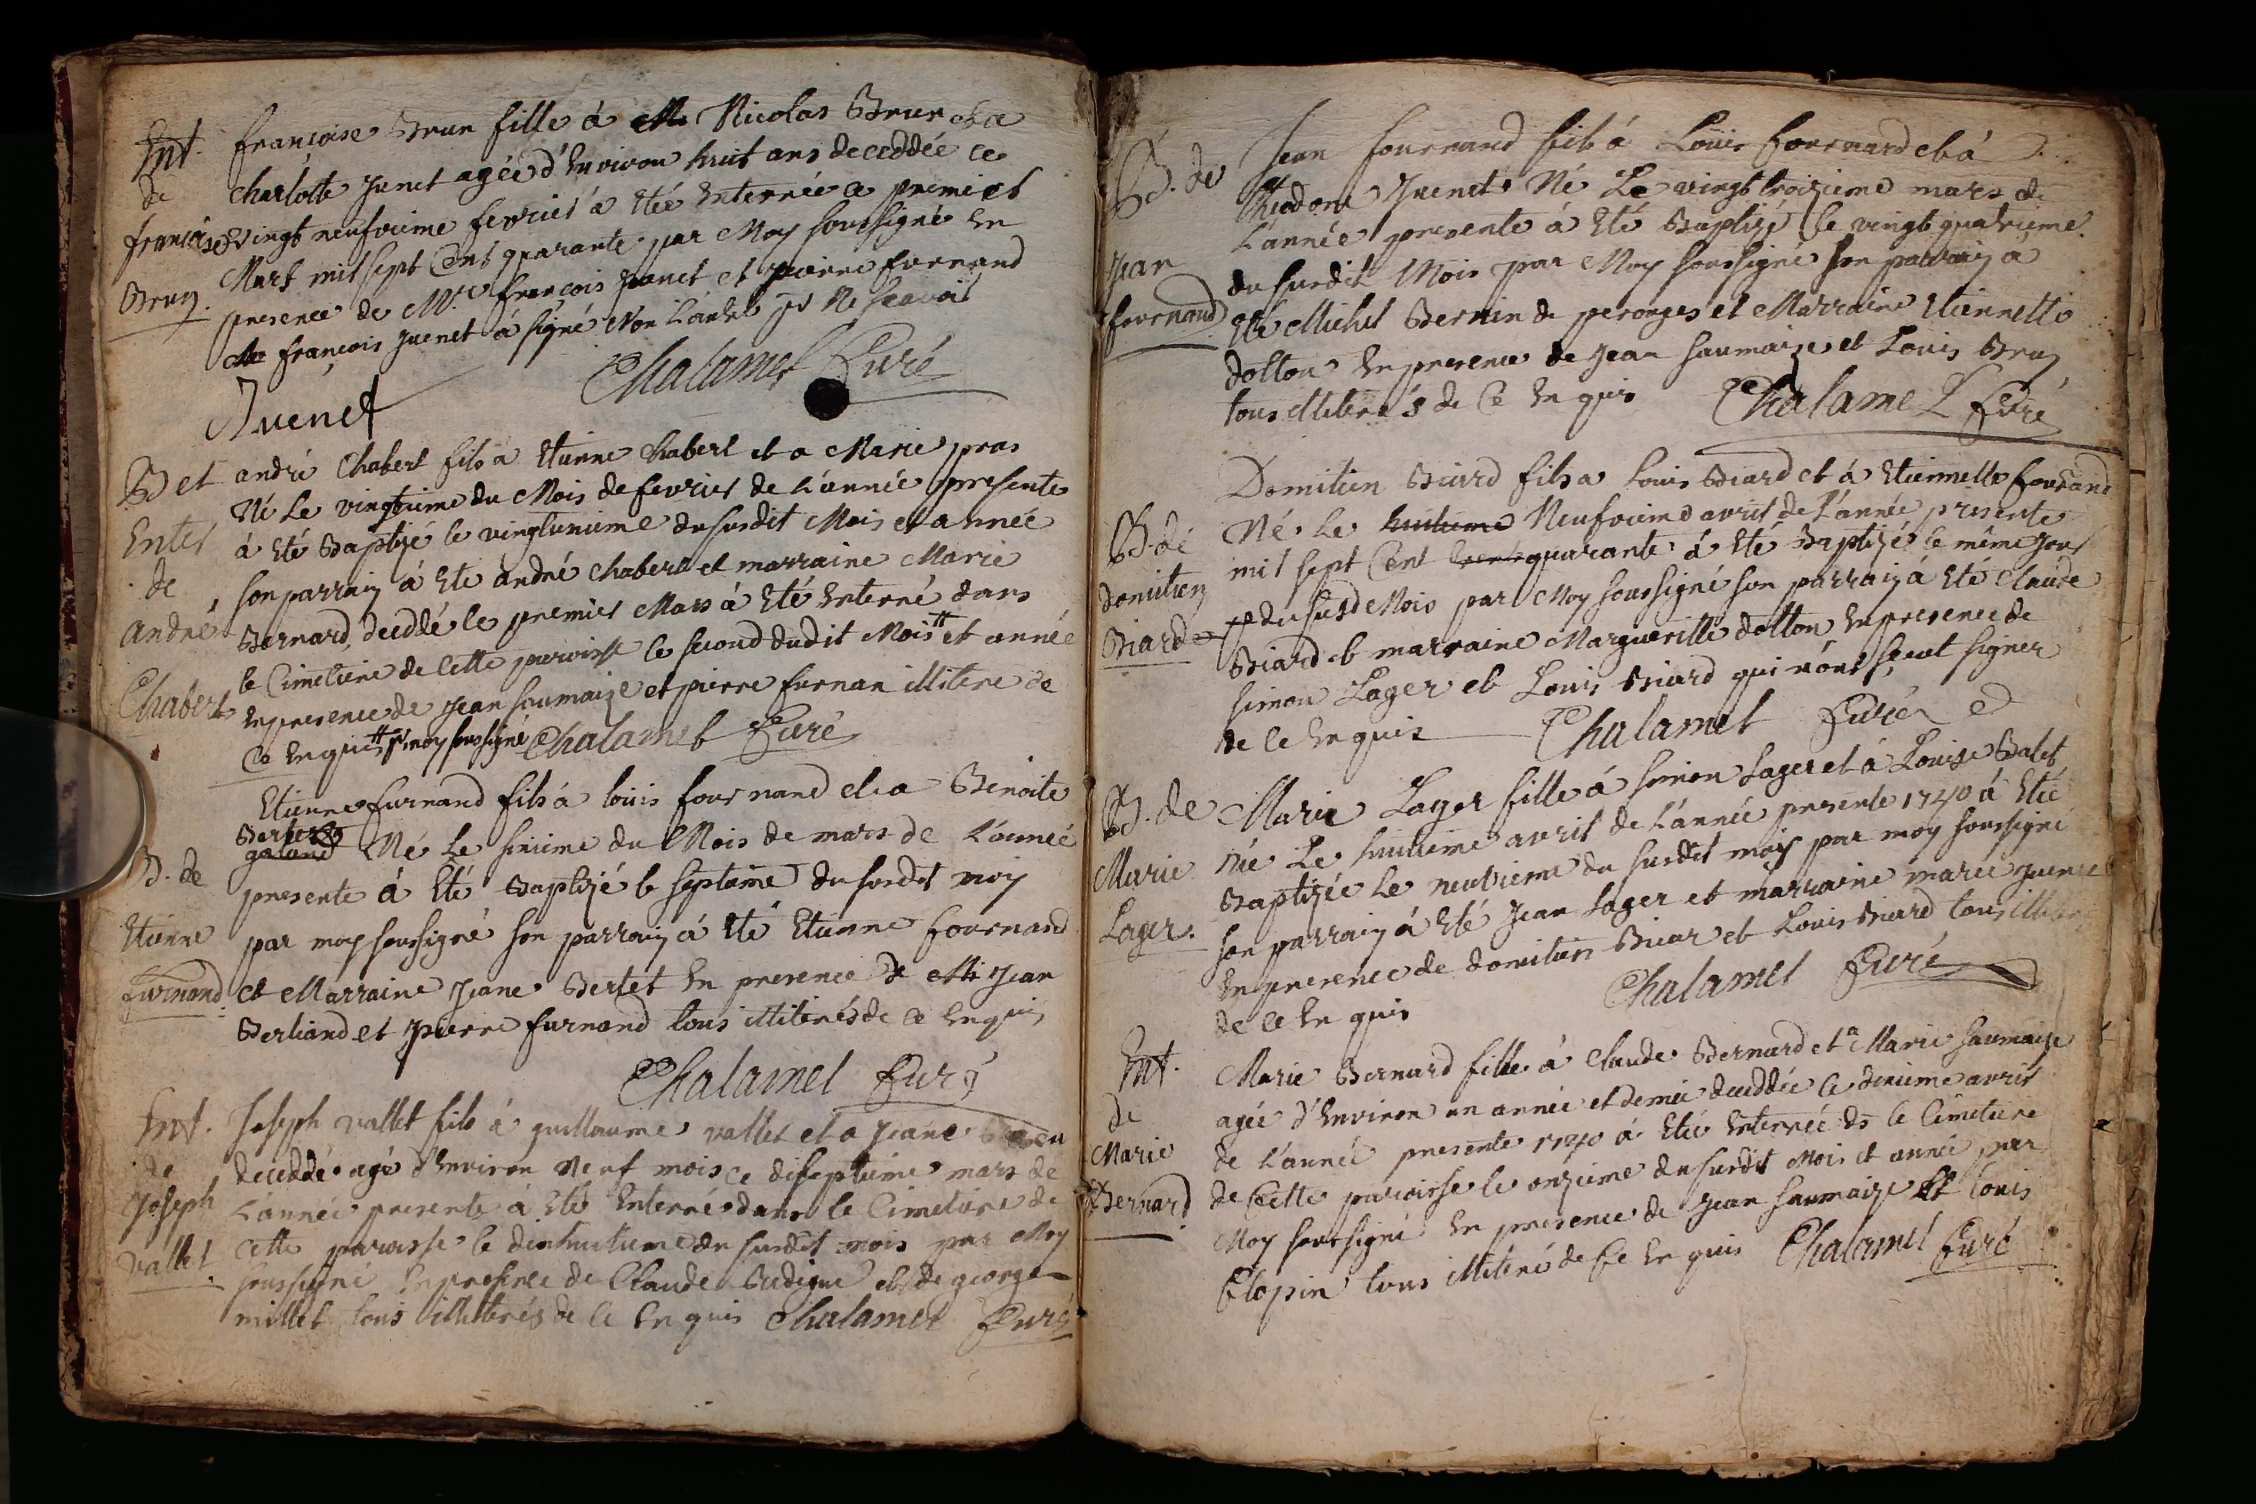 Ent.
de
françoise
Brun.
françoise Brun fille á Me Nicolas Brun et a
Charlotte Juenet agée d'Environ huit ans deceddée ce
vingt neufvieme fevrier á Eté Enterrée ce premier
Mars mil sept Cent quarante par Moy soussigné En
presence de Mre francois Juenet et pierre furnand
Me françois Juenet á signé Non L'autre po Ne scavoir
Juenet
Chalamel Curé
B et
Enter
de
andré
Chabert
andré Chabert fils a Etienne Chabert et a Marie pras
Né Le vingtieme du Mois de fevrier de L'année presente
á Eté Baptizé le vingtunieme du susdit Mois et année
son parrain á Eté andré Chabert et marraine Marie
Bernard, deceddé le premier Mars á Eté Enterré dans
le Cimetiere de Cette paroisse le second dudit Mois # et année
En presence de Jean saumaize et pierre furnan illitere de
Ce Enquis # pr moy soussigné Chalamel Curé
B. de
Etienne
furnand.
Etienne furnand fils á loüis fournand et a Benoite
Berliand
galand Né Le sixieme du Mois de mars de L'année
presente á Eté Baptizé le septieme du susdit moy
par moy soussigné son parrain á Eté Etienne fournand
et Marraine Jeane Bertet En presence de Me Jean
Berliand et pierre furnand tous illiterés de Ce Enquis
Chalamel Curé
Ent.
de
Joseph
Vallet.
Joseph vallet fils á guillaume vallet et a Jeane
deceddé agé d'Environ Neuf mois ce diseptieme mars de
L'année presente á Eté Enterré dans le Cimetiere de
Cette paroisse le dixhuitieme du susdit mois par Moy
soussigné En presence de Claude Bedigue et de george
millet tous illiterés de Ce Enquis Chalamel Curé
B. de
Jean
fournand
Jean fournand fils á Loüis fournand et á
Theodore Juenet Né Le vingt troizieme mars de
L'année presente á Eté Baptizé le vingt quatrieme
du susdit Mois par Moy soussigné son parrain á
Eté Michel Bernin de perouges et Marraine Etiennette
dotton En presence de Jean saumaize et Louis Brun
tous illiterés de Ce Enquis Chalamel Curé
B. de
domitien
Biard
Domitien Biard fils a Louis Biard et á Etiennette fournand
Né Le huitieme Neufvieme avril de L'année presente
mil sept Cent trente quarante á Eté Baptizé le même jour
du susd Mois par Moy soussigné son parrain á Eté Claude
Biard et marraine Margueritte dotton En presence de
simon Lager et Louis Biard qui n'ont sçeut signer
de Ce Enquis Chalamel Curé
B. de
Marie
Lager.
Marie Lager fille á simon Lager et á Louise Balet
née Le huitieme avril de L'année presente 1740 á Eté
Baptizée Le neuvieme du susdit moys par moy soussigné
son parrain á Eté Jean Lager et marraine marie Juenet
En presence de domitien Biar et Louis Biard tous
de Ce Enquis Chalamel Curé
Ent.
de
Marie
Bernard
Marie Bernard fille á Claude Bernard et a Marie saumaize
agée d'Environ un année et demie deceddée Ce dixieme avril
de L'année presente 1740 á Eté Enterrée ds le Cimetiere
de Cette paroisse le onzieme du susdit Mois et année par
Moy soussigné En presence de Jean saumaize Et Louis
Clopin tous illiteré de Ce Enquis Chalamel Curé